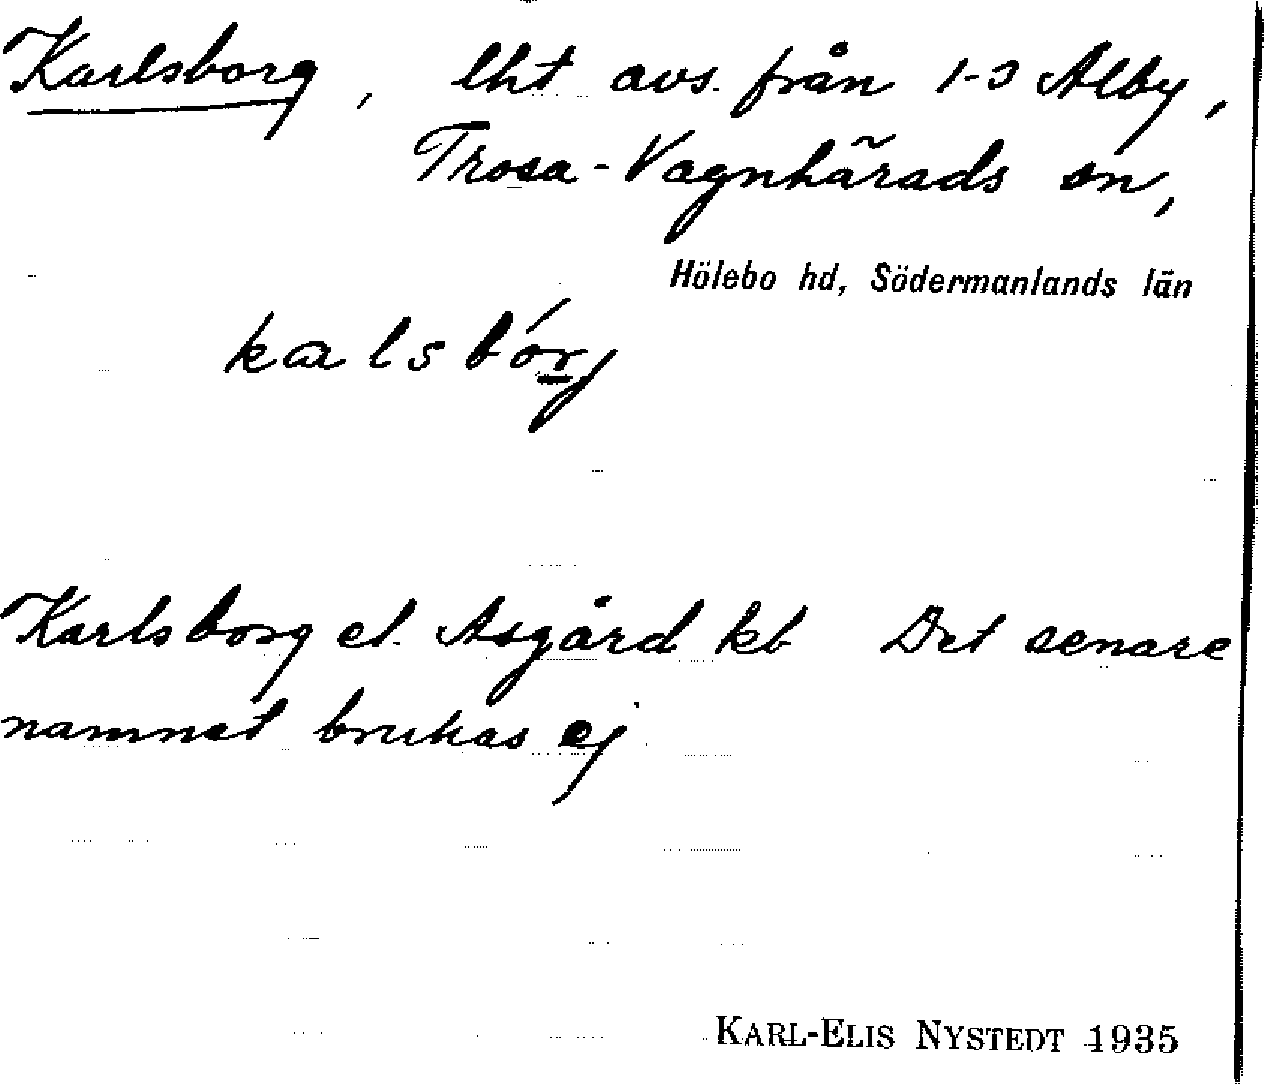 Karlsborg, lht avs. från 1-3 Alby,
Trosa-Vagnhärads sn,
Hölebo hd, Södermanlands län
kalsbórj
Karlsborg el. Asgård kb Det senare
namnet brukas ej
KARL-ELIS NYSTEDT 1935